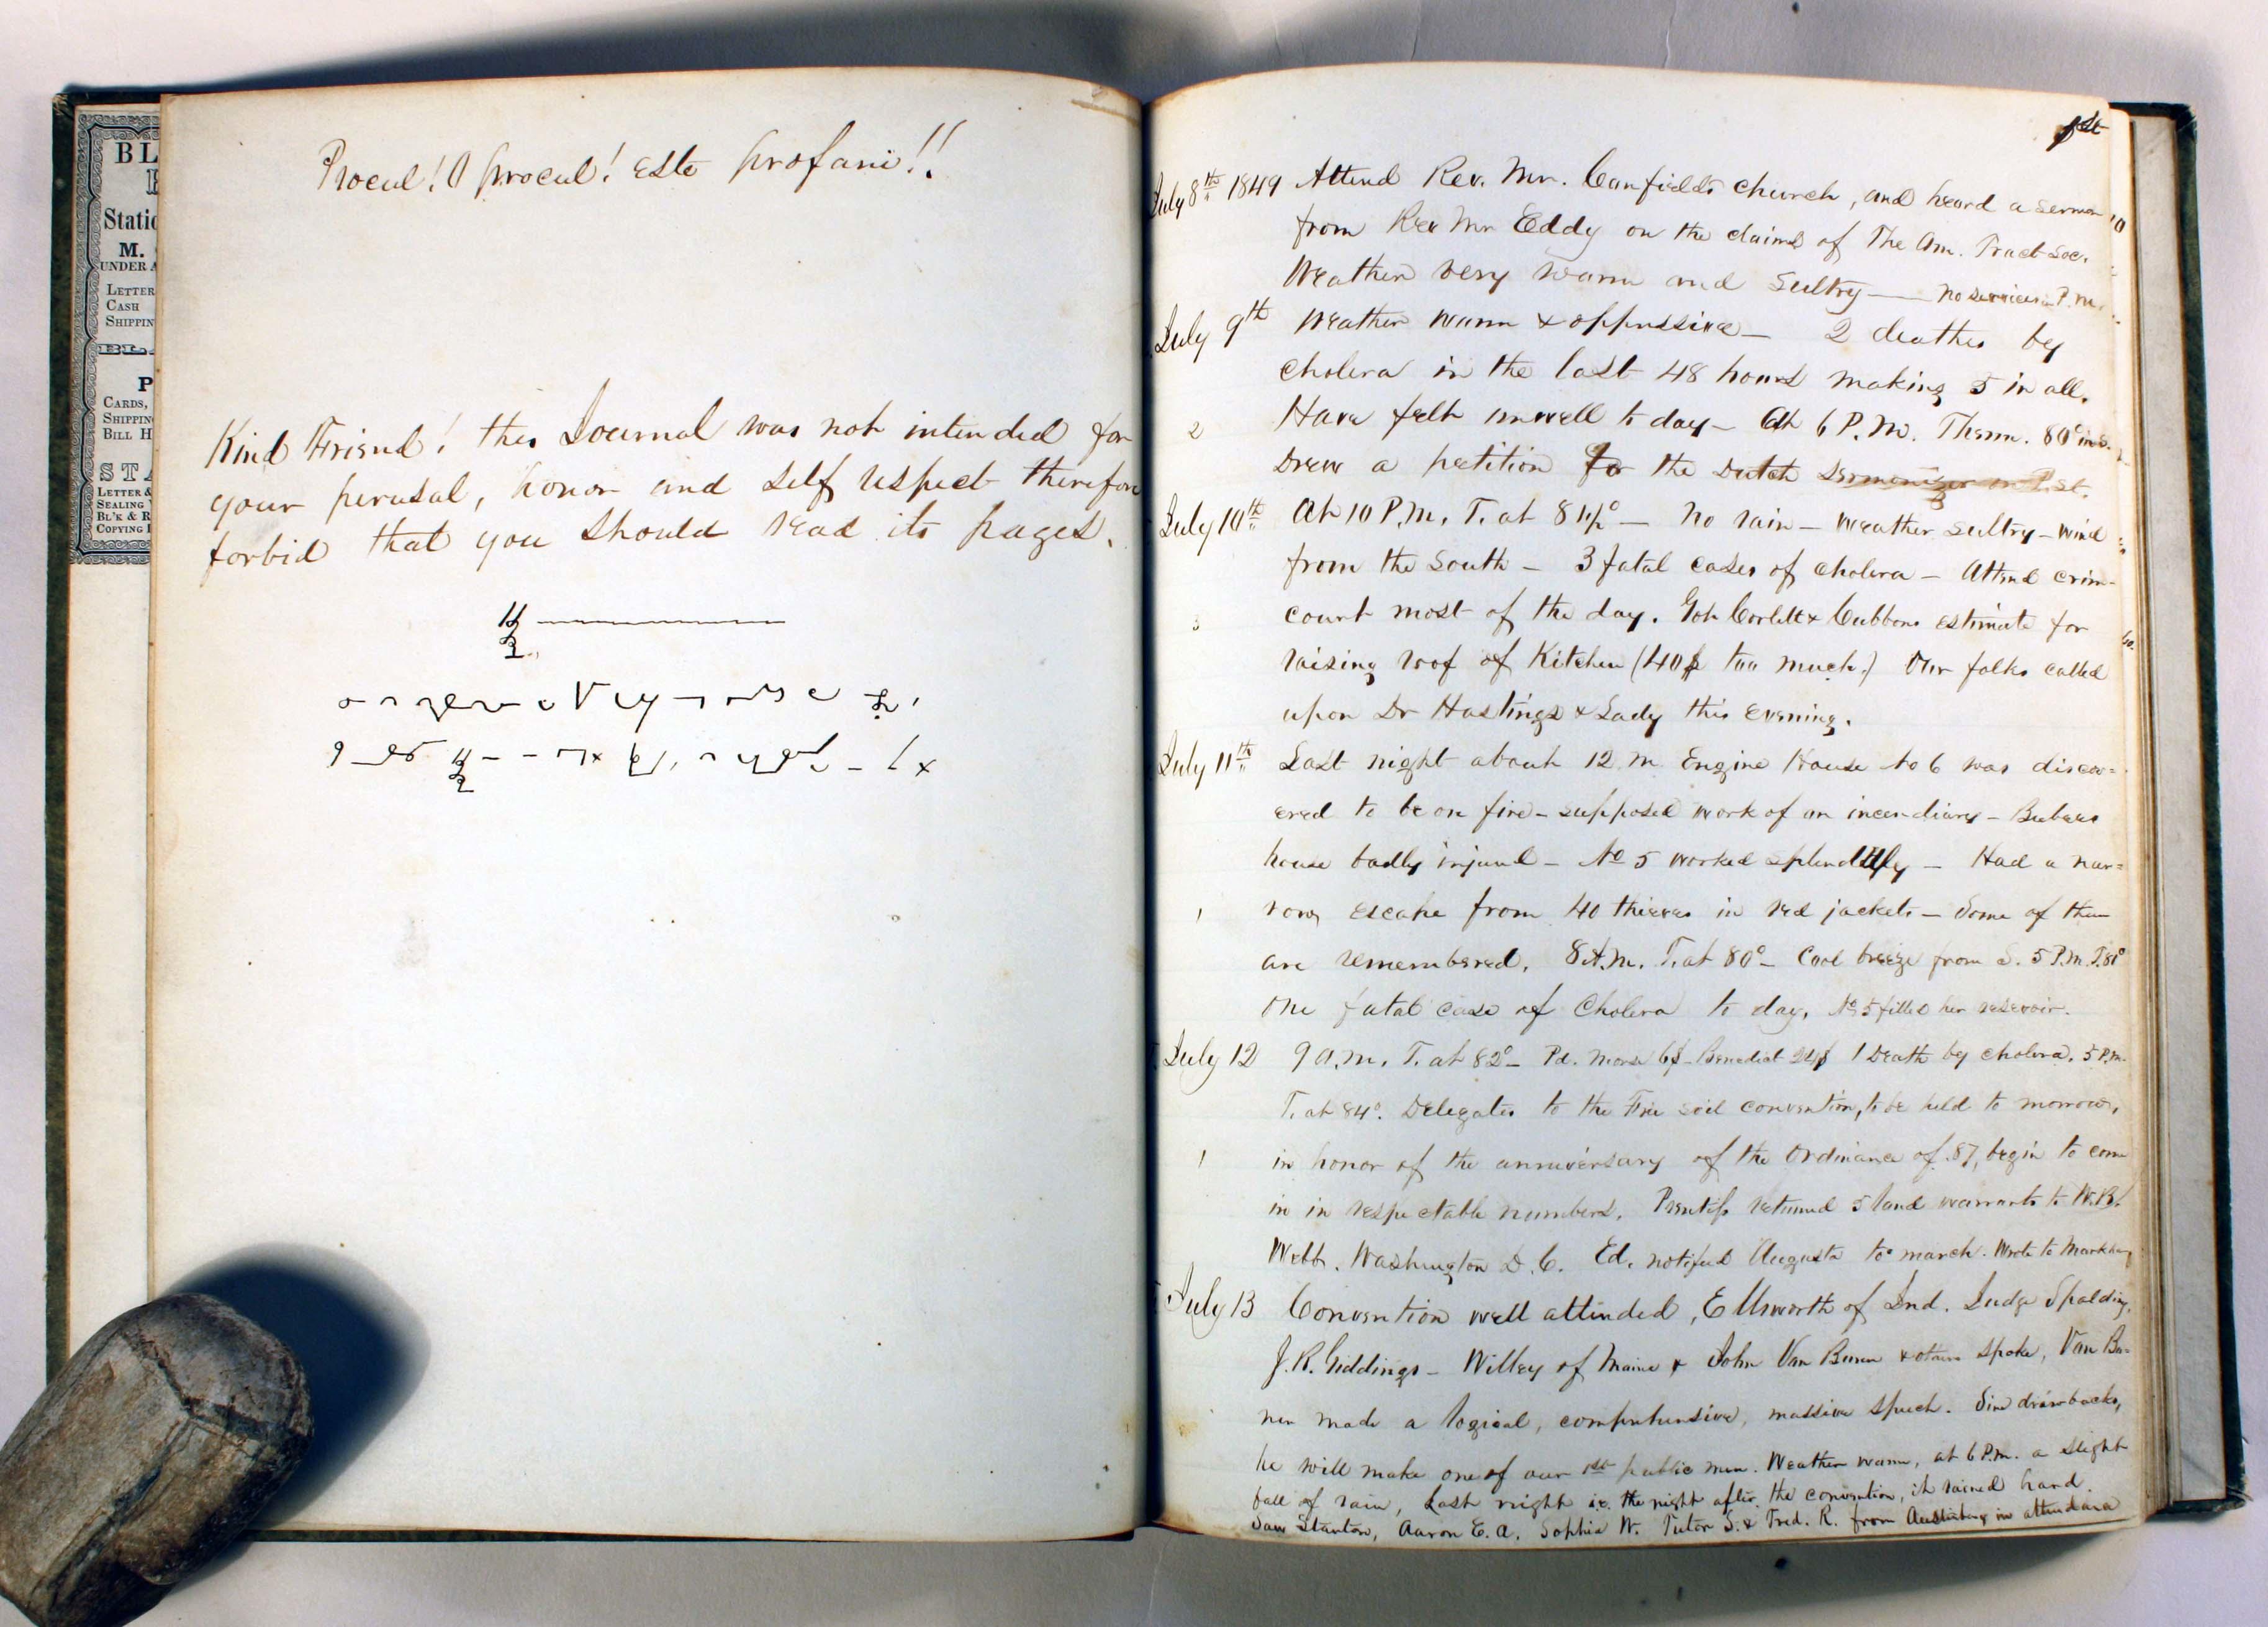 BL
Static
M.
UNDER A
LETTER
CASH
SHIPPIN
P
CARDS,
SHIPPING
BILL H
STA
LETTER &
SEALING
BL'K & R
COPYING
Procul! O procul! este profani!!
Kind Friend! this Journal was not intended for
your perusal, honor and self respect therefore
forbid that you should read its pages.
1st
July 8th 1849 Attend Rev. Mr. Canfield's church, and heard a sermon
from Rev Mr Eddy on the claims of The Am. Tract Soc.
Weather very warm and sultry — no services P.M.
July 9th Weather warm & oppressive — 2 deaths by
cholera in the last 48 hours making 5 in all.
2 Have felt unwell to day — At 6 P.M. Therm. 80°
Drew a petition for the Dutch
July 10th At 10 P.M. T. at 81½° — No rain — weather sultry — wind
from the South — 3 fatal cases of cholera — Attend crim-
3 court most of the day. Got Corlett & Cubbons estimate for
raising roof of Kitchen (40$ too much.) Our folks called
upon Dr Hastings & Lady this evening.
July 11th Last night about 12 M Engine House No 6 was discov=
ered to be on fire — supposed work of an incendiary —
house badly injured — No 5 worked splendidly — Had a nar=
1 row escape from 40 thieves in red jackets — Some of them
are remembered. 8 A.M. T. at 80° — Cool breeze from S. 5 P.M. T. 81°
One fatal case of Cholera to day. No 5 filled her reservoir.
July 12 9 A.M. T. at 82° — Pd. Morse 6$ — Benedict 24$ 1 Death by cholera. 5 P.M.
T. at 84°. Delegates to the Free soil convention, to be held to morrow,
1 in honor of the anniversary of the Ordinance of .87, begin to come
in in respectable numbers. Prentiss returned 5 land warrants to W.B.
Webb. Washington D.C. Ed. notified Augusta to march. Wrote to Markham
July 13 Convention well attended, Ellsworth of Ind. Judge Spalding,
J.R. Giddings — Willey of Maine & John Van Buren & others spoke, Van Bu=
ren made a logical, comprehensive, massive speech. Sine drawbacks,
he will make one of our 1st public men. Weather warm, at 6 P.M. a slight
fall of rain, Last night i.e. the night after the convention, it rained hard.
Saw Stanton, Aaron E. A. Sophia W. Tutor S. & Fred. R. from Austinburg in attendance